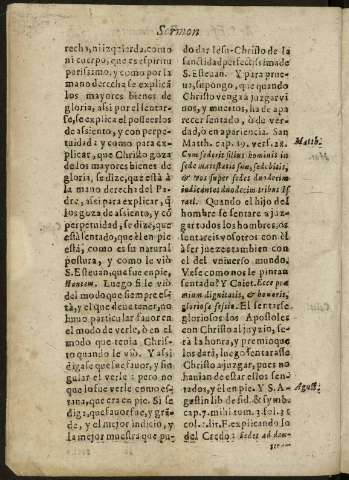 Sermon
recha, ni izquierda, como
ni cuerpo, que es espiritu
purissimo, y como por la
mano derecha se explicã
los mayores bienes de
gloria, assi por el sentar-
se, se explica el posseerlos
de assiento, y con perpe-
tuidad; y como para ex-
plicar, que Christo goza
de los mayores bienes de
gloria, se dize, que està à
la mano derecha del Pa-
dre, assi para explicar, q̃
los goza de assiento, y cõ
perpetuidad, se dize, que
està sentado, que el en pie
està, como es su natural
postura, y como le viò
S. Esteuan, que fue en pie,
stantem. Luego si le viò
del modo que siempre es-
tà, y el que deue tener, no
huuo particular fauor en
el modo de verle, ò en el
modo que tenia Chris-
to quando le viò. Y assi
digase que fue fauor, y sin-
gular el verle; pero no
que lo fue verle como es-
taua, que era en pie. Si se
diga, que fauor fue, y grã-
de, y el mejor indicio, y
la mejor muestra que pu-
do dar Iesu-Christo de la
santidad perfectissima de
S. Esteuan. Y para prue-
ua, supongo, que quando
Christo venga a juzgar vi-
uos, y muertos, ha de apa
recer sentado, ò de ver-
dad, ò en apariencia. San
Matth. cap. 19. vers. 28.
Cum sederit filius hominis in
sede maiestatis suæ, sedebitis,
& vos super sedes duodecim
iudicantes duodecim tribus Is
rael. Quando el hijo del
hombre se sentare a juz-
gar todos los hombres, os
sentareis vosotros con èl
a ser juezes tambien con
el del vniuerso mundo.
Vese como nos le pintan
sentado? Y Caiet. Ecce præ
mium dignitatis, & honoris,
gloriosa sessio. El sentarse
gloriosos los Apostoles
con Christo al juyzio, se-
rà la honra, y premio que
los darà, luego sentarase
Christo a juzgar, pues no
hauian de estar ellos sen-
tados, y el en pie. Y S. A-
gustin lib de fid. & symbo
cap. 7. mihi tom. 3. fol. 36
col. 2. lit. F. explicando lo
del Credo: Sedet ad dex-
teram
Matth.
August.